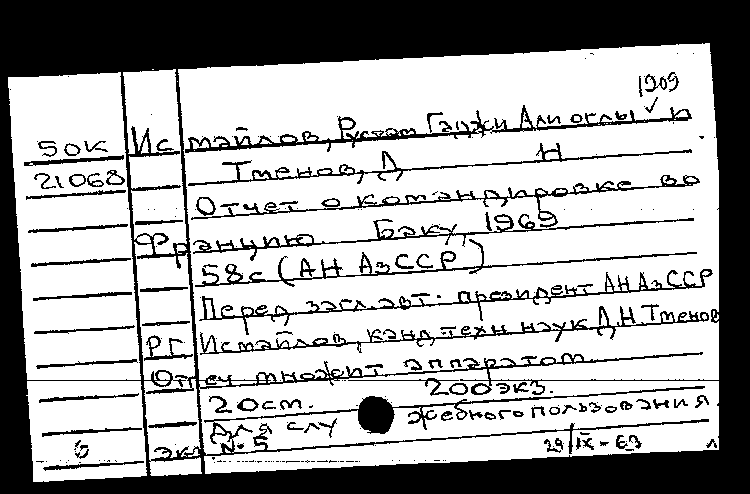 1909
50к Исмайлов, Рустам Гаджи Али оглы и
21068 Тменов, Д Н
Отчет о командировке во
Францию. Баку, 1969
58с (АН АзССР)
Перед загл. авт: президент АН АзССР
Р.Г. Исмайлов, канд техн наук Д.Н. Тменов
Отпеч множит аппаратом
20cm. 200экз.
Для служебного пользования.
6 экз. № 5 29/IX-69